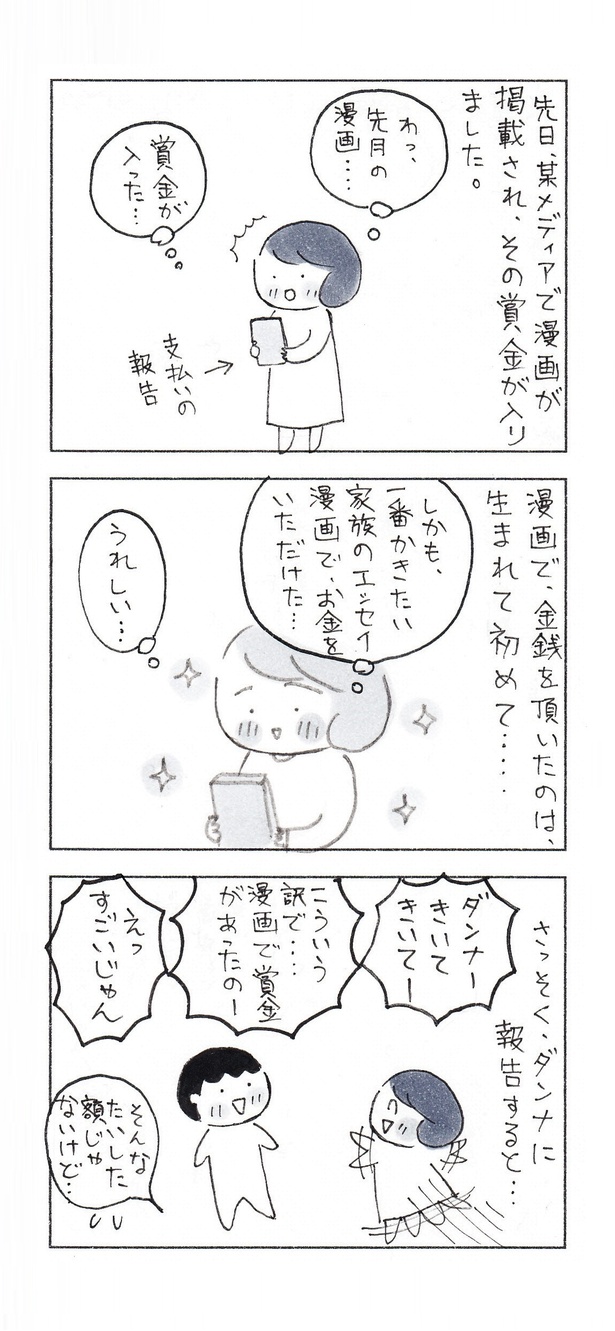 先日、某メディアで漫画が
掲載され、その賞金が入り
ました。
わっ、
先月の
漫画‥‥
賞金が
入った…
支払いの
報告
漫画で、金銭を頂いたのは、
生まれて初めて‥‥‥
しかも、
一番かきたい
家族のエッセイ
漫画で、お金を
いただけた…
うれしい…
さっそく、ダンナに
報告すると…
ダンナー
きいて
きいてー
こういう
訳で‥‥
漫画で賞金
があったのー
えっ
すごいじゃん
そんな
たいした
額じゃ
ないけど…